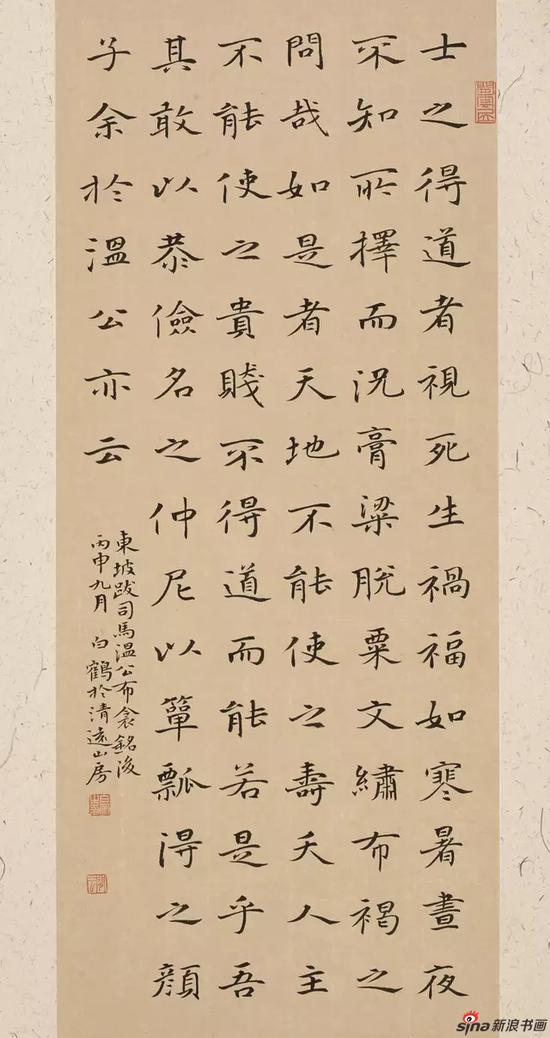 士之得道者視死生禍福如寒暑晝夜
不知所擇而況膏粱脫粟文繡布褐之
問哉如是者天地不能使之壽夭人主
不能使之貴賤不得道而能若是乎吾
其敢以恭儉名之仲尼以簞瓢得之顏
子余於溫公亦云
東坡跋司馬溫公布衾銘後
丙申九月 白鶴於清遠山房
sina新浪书画